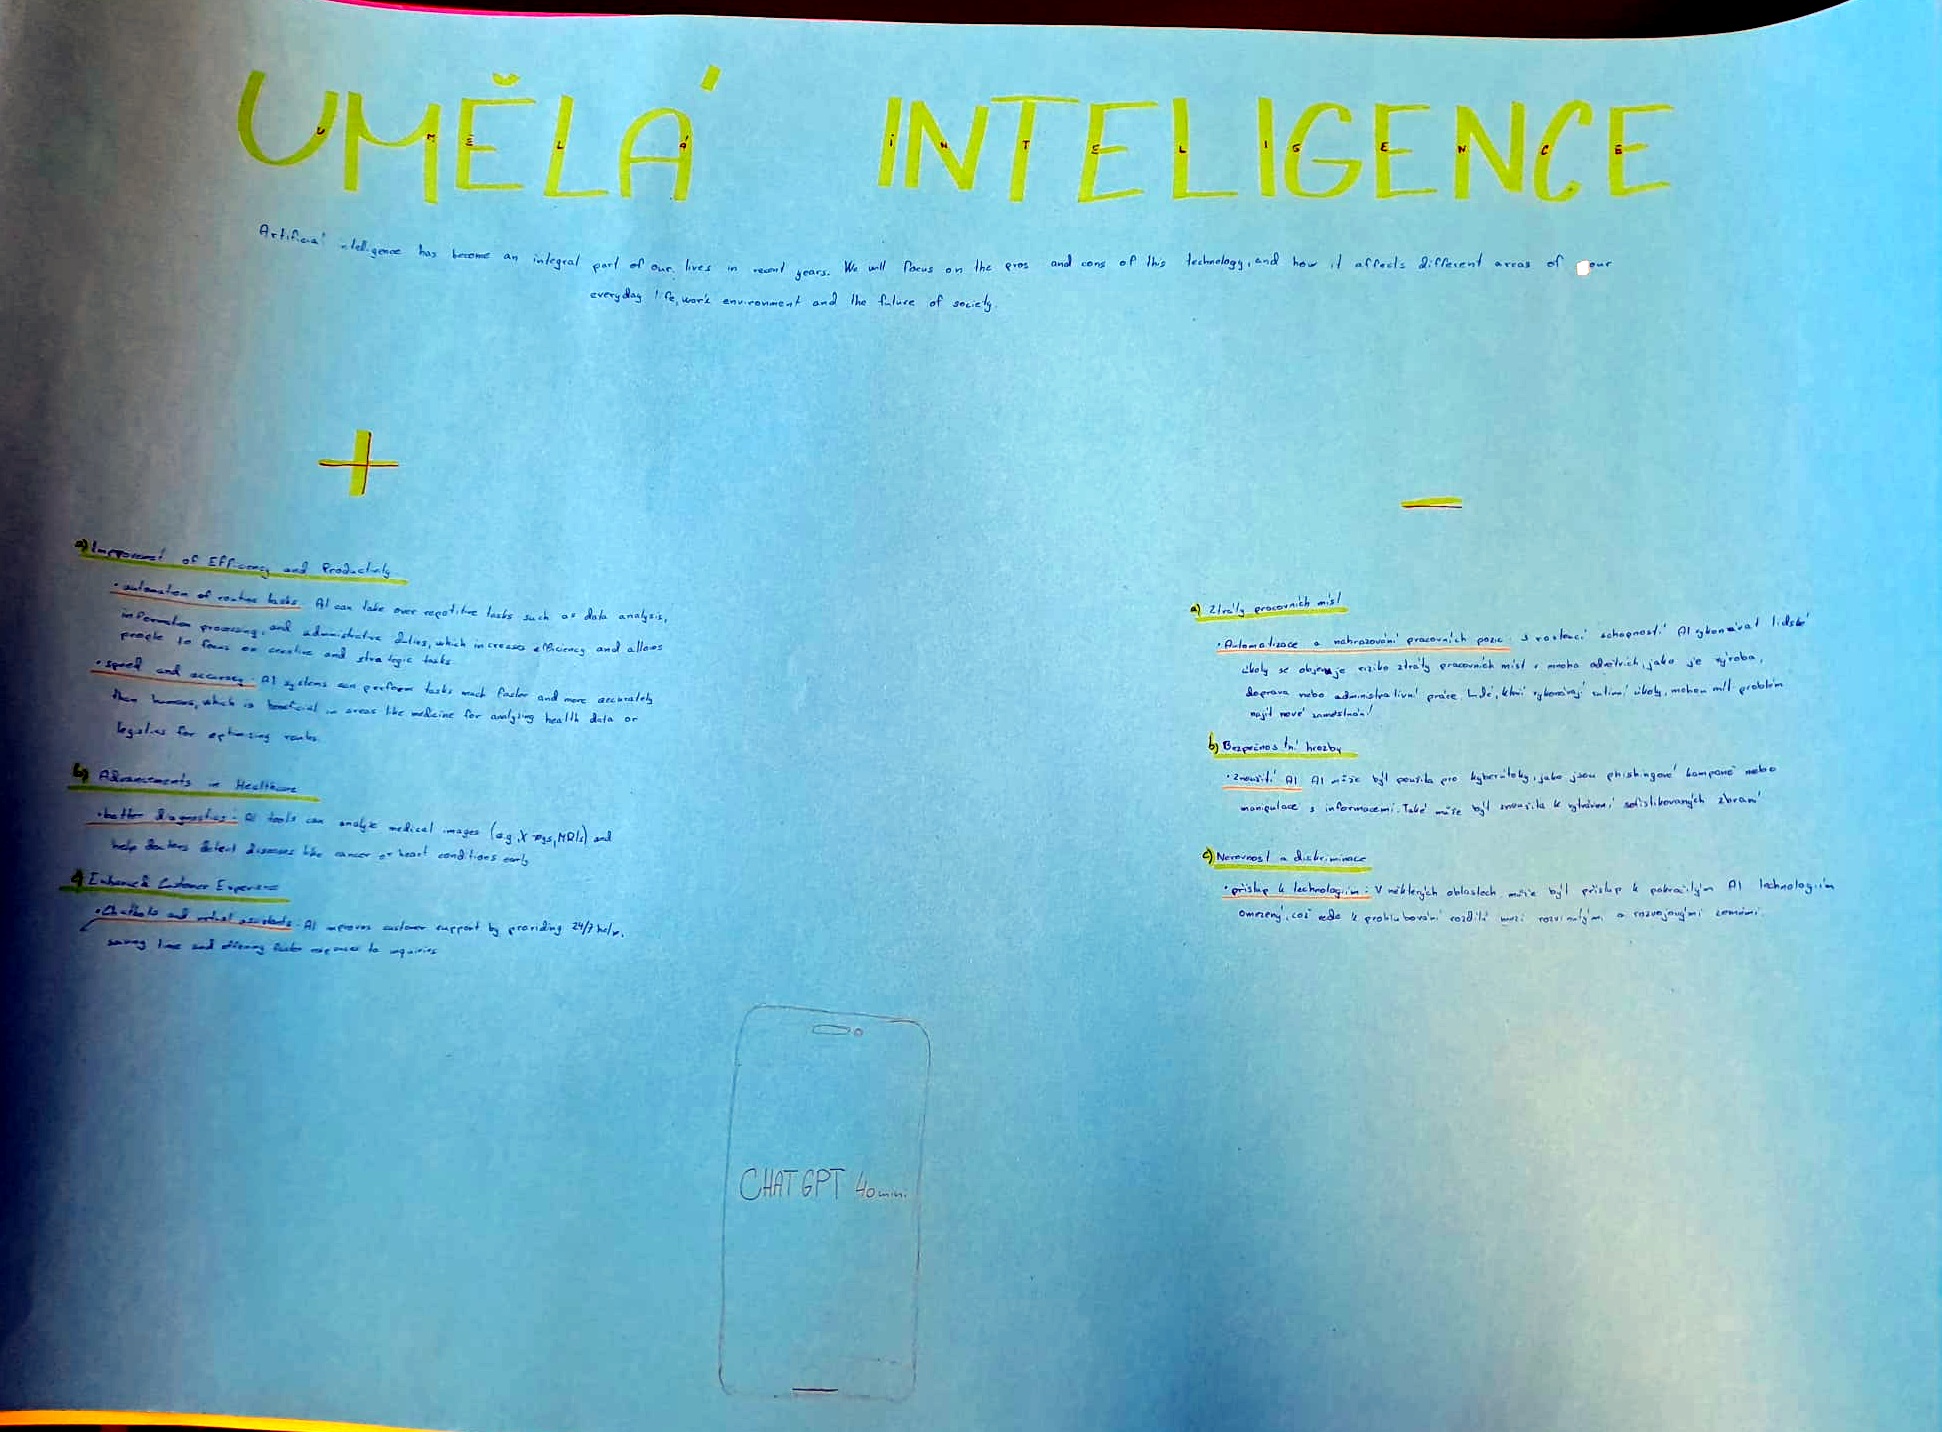 UMĚLÁ INTELIGENCE
U M Ě L Á I N T E L I G E N C E
Artificial intelligence has become an integral part of our lives in recent years. We will focus on the pros and cons of this technology, and how it affects different areas of our
everyday life, work environment and the future of society.
+
a) Improvemet of Efficiency and Productivity
• automation of routine tasks: AI can take over repetitive tasks such as data analysis,
information processing, and administrative duties, which increases efficiency and allows
people to focus on creative and strategic tasks
• speed and accuracy: AI systems can perform tasks much faster and more accurately
than humans, which is beneficial in areas like medicine for analyzing health data or
logistics for optimizing routes
b) Advancements in Healthcare
• better diagnostics: AI tools can analyze medical images (e.g., X rays, MRIs) and
help doctors detect diseases like cancer or heart conditions early
c) Enhanced Customer Experience
• Chatbots and virtual assistants: AI improves customer support by providing 24/7 help,
saving time and offering faster responses to inquiries
−
a) Ztráty pracovních míst
• Automatizace a nahrazování pracovních pozic: s rostoucí schopností AI vykonávat lidské
úkoly se objevuje riziko ztráty pracovních míst v mnoha odvětvích, jako je výroba,
doprava nebo administrativní práce. Lidé, kteří vykonávají rutinní úkoly, mohou mít problém
najít nové zaměstnání
b) Bezpečnostní hrozby
• Zneužití AI AI může být použita pro kyberútoky, jako jsou phishingové kampaně nebo
manipulace s informacemi. Také může být zneužita k vytváření sofistikovaných zbraní
c) Nerovnost a diskriminace
• přístup k technologiím: V některých oblastech může být přístup k pokročilým AI technologiím
omezený, což vede k prohlubování rozdílů mezi rozvinutými a rozvojovými zeměmi.
CHAT GPT 4o mini